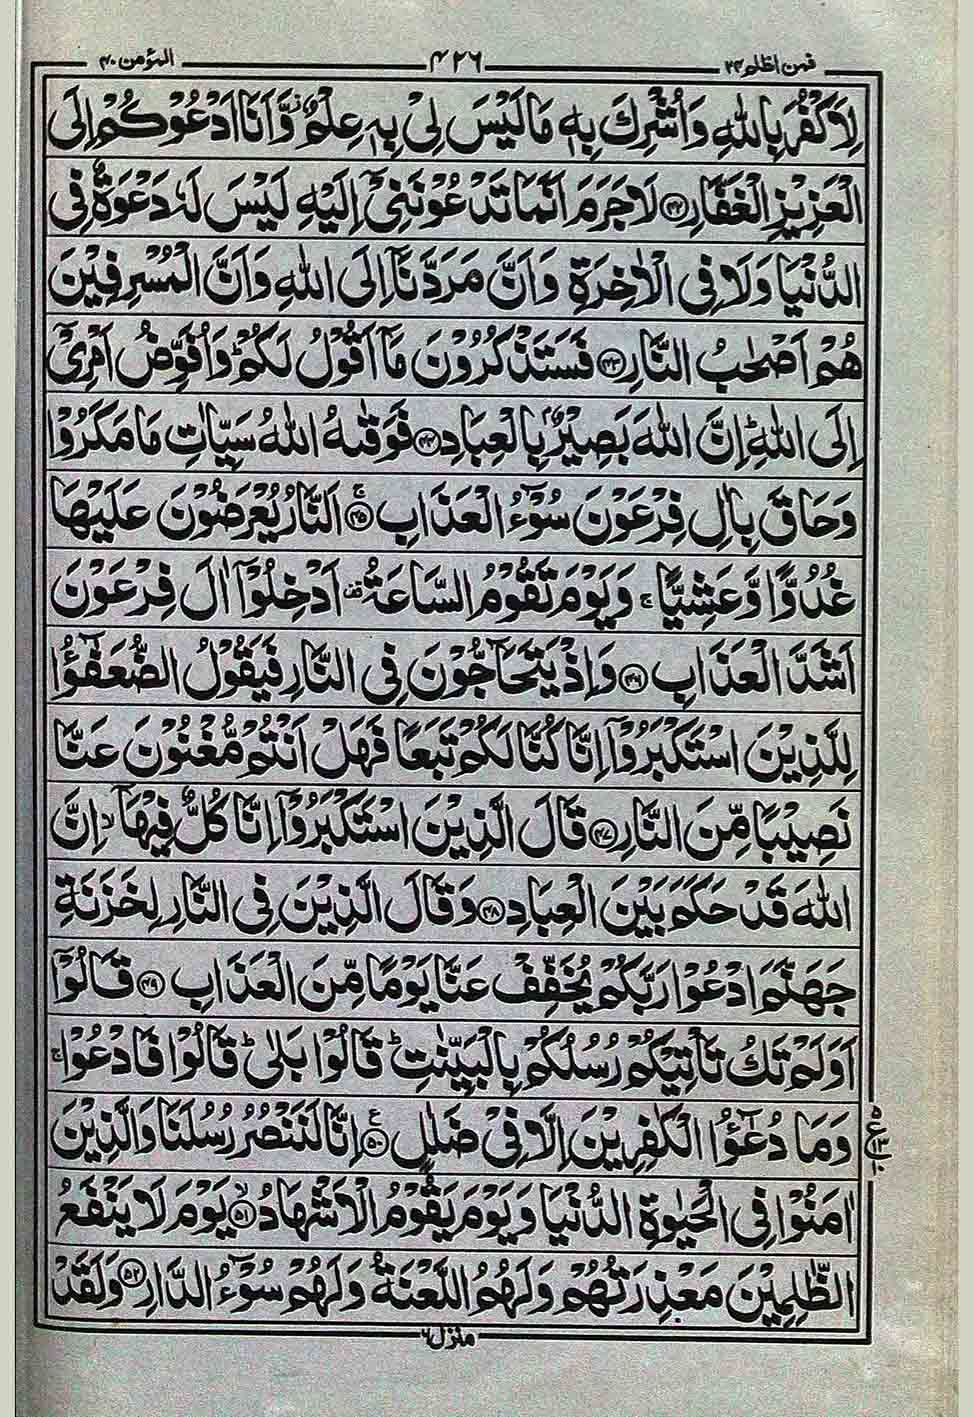 فمن اظلم ۲۴ ۴۲۶ المؤمن ۴۰
لِاَكْفُرَ بِاللّٰهِ وَاُشْرِكَ بِهٖ مَا لَيْسَ لِىْ بِهٖ عِلْمٌ ۡ وَّاَنَا اَدْعُوْكُمْ اِلَى
الْعَزِيْزِ الْغَفَّارِ ﴿۴۲﴾ لَا جَرَمَ اَنَّمَا تَدْعُوْنَنِىْۤ اِلَيْهِ لَيْسَ لَهٗ دَعْوَةٌ فِى
الدُّنْيَا وَلَا فِى الْاٰخِرَةِ وَاَنَّ مَرَدَّنَاۤ اِلَى اللّٰهِ وَاَنَّ الْمُسْرِفِيْنَ
هُمْ اَصْحٰبُ النَّارِ ﴿۴۳﴾ فَسَتَذْكُرُوْنَ مَاۤ اَقُوْلُ لَكُمْ ؕ وَاُفَوِّضُ اَمْرِىْۤ
اِلَى اللّٰهِ ؕ اِنَّ اللّٰهَ بَصِيْرٌۢ بِالْعِبَادِ ﴿۴۴﴾ فَوَقٰٮهُ اللّٰهُ سَيِّاٰتِ مَا مَكَرُوْا
وَحَاقَ بِاٰلِ فِرْعَوْنَ سُوْٓءُ الْعَذَابِ ۚ ﴿۴۵﴾ اَلنَّارُ يُعْرَضُوْنَ عَلَيْهَا
غُدُوًّا وَّعَشِيًّا ۚ وَيَوْمَ تَقُوْمُ السَّاعَةُ قف اَدْخِلُوْۤا اٰلَ فِرْعَوْنَ
اَشَدَّ الْعَذَابِ ﴿۴۶﴾ وَاِذْ يَتَحَآجُّوْنَ فِى النَّارِ فَيَقُوْلُ الضُّعَفٰٓؤُا
لِلَّذِيْنَ اسْتَكْبَرُوْۤا اِنَّا كُنَّا لَكُمْ تَبَعًا فَهَلْ اَنْتُمْ مُّغْنُوْنَ عَنَّا
نَصِيْبًا مِّنَ النَّارِ ﴿۴۷﴾ قَالَ الَّذِيْنَ اسْتَكْبَرُوْۤا اِنَّا كُلٌّ فِيْهَاۤ ۙ اِنَّ
اللّٰهَ قَدْ حَكَمَ بَيْنَ الْعِبَادِ ﴿۴۸﴾ وَقَالَ الَّذِيْنَ فِى النَّارِ لِخَزَنَةِ
جَهَنَّمَ ادْعُوْا رَبَّكُمْ يُخَفِّفْ عَنَّا يَوْمًا مِّنَ الْعَذَابِ ﴿۴۹﴾ قَالُوْۤا
اَوَلَمْ تَكُ تَاْتِيْكُمْ رُسُلُكُمْ بِالْبَيِّنٰتِ ؕ قَالُوْا بَلٰى ؕ قَالُوْا فَادْعُوْا ۚ
وَمَا دُعٰٓؤُا الْكٰفِرِيْنَ اِلَّا فِىْ ضَلٰلٍ ﴿۵۰﴾ ع اِنَّا لَنَنْصُرُ رُسُلَنَا وَالَّذِيْنَ
اٰمَنُوْا فِى الْحَيٰوةِ الدُّنْيَا وَيَوْمَ يَقُوْمُ الْاَشْهَادُ ۙ ﴿۵۱﴾ يَوْمَ لَا يَنْفَعُ
الظّٰلِمِيْنَ مَعْذِرَتُهُمْ وَلَهُمُ اللَّعْنَةُ وَلَهُمْ سُوْٓءُ الدَّارِ ﴿۵۲﴾ وَلَقَدْ
منزل ۶